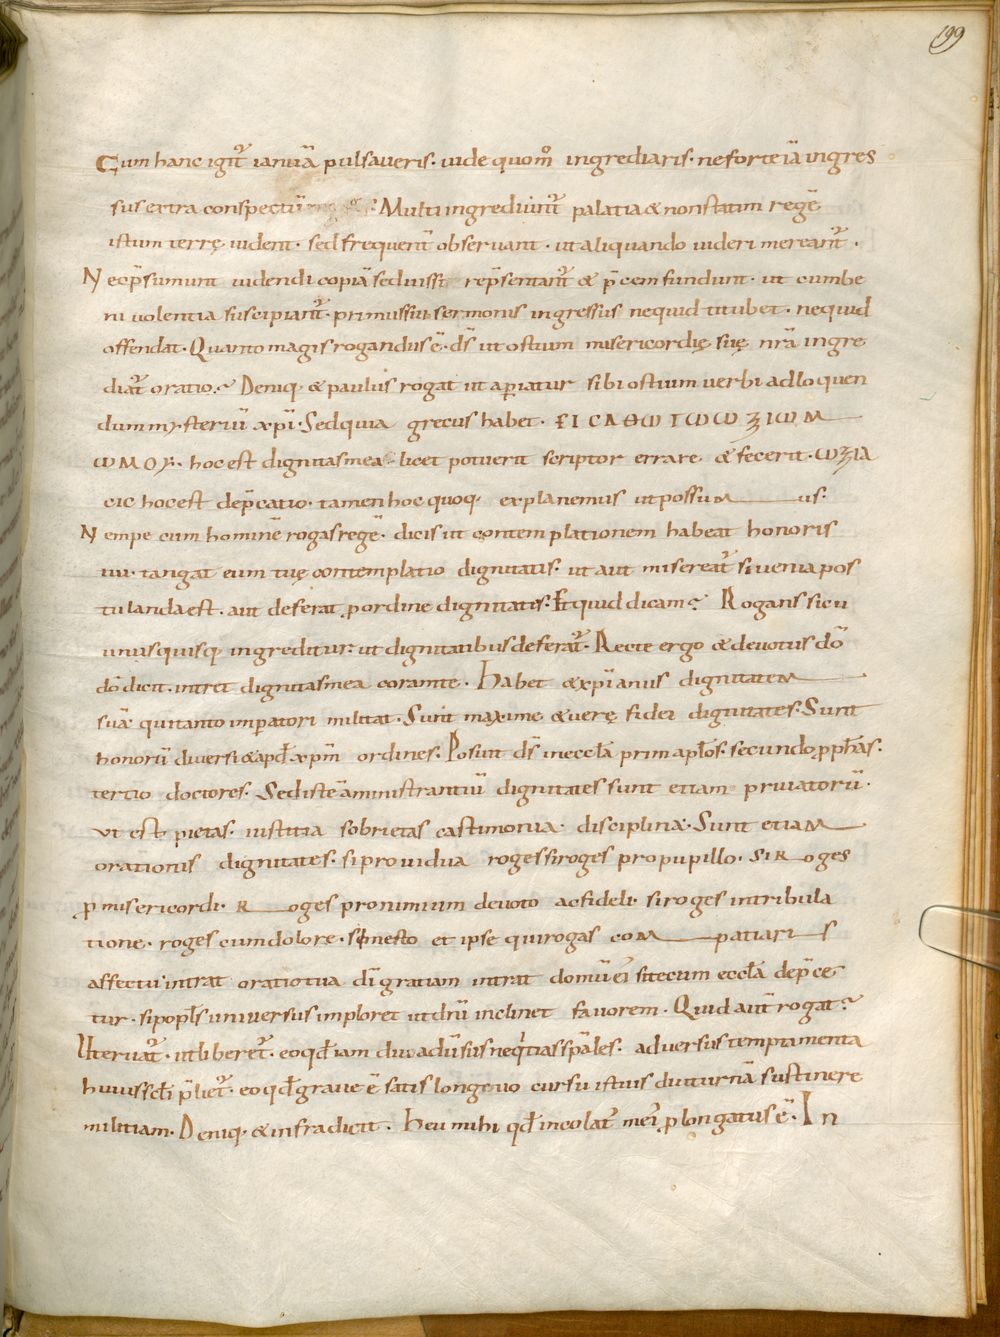 199
Cum hanc igit᷑ ianuā pulsaueris. uide quom̊ ingrediaris. ne forte iā ingres
sus extra conspectū Multi ingrediunt᷑ palatia & non statim regē
istum terrę uident. sed frequent̄ obseruant. ut aliquando uideri mereant᷑.
Nec p̄sumunt uidendi copiā sed iussi rep̄sentant᷑ & p̄cem fundunt. ut cum be
niuolentia suscipiant᷑. primus sui sermonis ingressus nequid titubet. nequid
offendat. Quanto magis rogandus ē. ds̄ ut ostium misericordię suę nr̄a ingre
diat᷑ oratio? Deniq. & paulus rogat ut aꝑiatur sibi ostium uerbi ad loquen
dum mysteriū xp̄i. Sed quia grecus habet. ЄICΛΘѠ TѠѠ ꙀIѠM
ѠMOY. hoc est dignitas mea. licet potuerit scriptor errare & fecerit. ѠꙀIA
cic hoc est dep̄catio. tamen hoc quoq. explanemus ut possumus.
Nempe cum hominē rogas regē. dicis ut contemplationem habeat honoris
tui. tangat eum tuę contemplatio dignitatis. ut aut misereat᷑ si uenia pos
tulanda est. aut deferat ꝓ ordine dignitatis. Et quid dicam? Rogans sicu
unusquisq ingreditur: ut dignitatibus deferat᷑. Recte ergo & deuotus dō
dō dicit. intret dignitas mea coram te. Habet & xp̄ianus dignitatem
suā qui tanto imꝑatori militat. Sunt maxime & uerę fidei dignitates. Sunt
honorū diuersi & apd̄ xp̄m ordines. Posuit ds̄ in eccłā prim apłos. secundo ꝓph̄as.
tertio doctores. Sed iste āministrantiū dignitates sunt etiam priuatorū.
Vt est pietas. iustitia sobrietas castimonia disciplina. Sunt etiam
orationis dignitates. si pro uidua roges si roges pro pupillo. si roges
ꝓ misericordi. roges pro nimium deuoto ac fideli. si roges in tribula
tione. roges cum dolore. si nesto et ipse qui rogas compatiaris
affectu intrat oratio tua dī gratiam intrat domū ei si tecum eccłā dep̄ce
tur. si popłs uniuersus imploret ut dn̄i inclinet fauorem. Quid aut̄ rogat?
Uteruat᷑. ut liberet᷑. eo qd̄ iam diu aduersus neq̇tias sp̄ales. aduersus temptamenta
huius scłi p̄liet᷑. eo qd̄ graue ē satis longeuo cursu istius diuturnā sustinere
militiam. Deniq. & infra dicit. Heu mihi qd̄ incolat᷑ meus ꝓlongatus ē. In